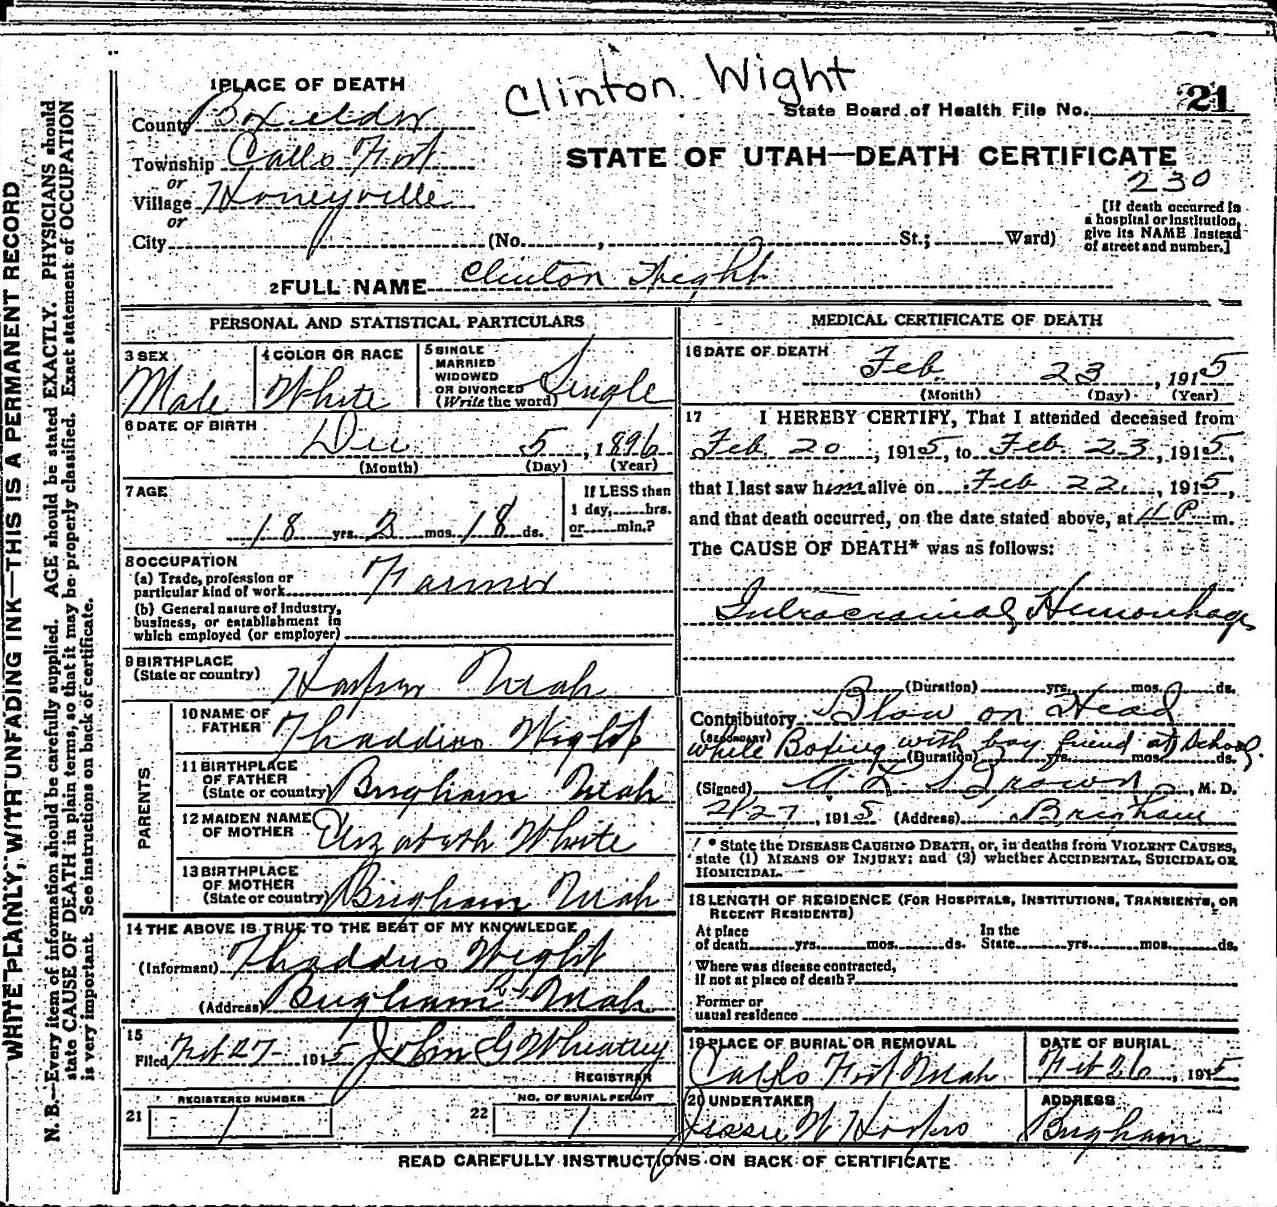 Clinton Wight
1 PLACE OF DEATH
State Board of Health File No. 21
County Boxelder
Township Calls Fort
STATE OF UTAH—DEATH CERTIFICATE
230
or
Village Honeyville
or
City (No. , St.; Ward)
[If death occurred in
a hospital or institution,
give its NAME instead
of street and number.]
2 FULL NAME Clinton Wight
PERSONAL AND STATISTICAL PARTICULARS
3 SEX
Male
4 COLOR OR RACE
White
5 SINGLE
MARRIED
WIDOWED
OR DIVORCED
(Write the word) Single
6 DATE OF BIRTH
Dec 5, 1896
(Month) (Day) (Year)
7 AGE
18 yrs. 2 mos. 18 ds.
If LESS than
1 day, hrs.
or min.?
8 OCCUPATION
(a) Trade, profession or
particular kind of work Farmer
(b) General nature of industry,
business, or establishment in
which employed (or employer)
9 BIRTHPLACE
(State or country) Harper Utah
PARENTS
10 NAME OF
FATHER Thaddius Wight
11 BIRTHPLACE
OF FATHER
(State or country) Brigham Utah
12 MAIDEN NAME
OF MOTHER Elizabeth White
13 BIRTHPLACE
OF MOTHER
(State or country) Brigham Utah
14 THE ABOVE IS TRUE TO THE BEST OF MY KNOWLEDGE
(Informant) Thaddus Wight
(Address) Brigham Utah
15
Filed Feb 27 1915 John G Wheatley
REGISTRAR
REGISTERED NUMBER
21 1
NO. OF BURIAL PERMIT
22 1
MEDICAL CERTIFICATE OF DEATH
16 DATE OF DEATH
Feb 23, 1915
(Month) (Day) (Year)
17 I HEREBY CERTIFY, That I attended deceased from
Feb 20, 1915, to Feb. 23, 1915,
that I last saw him alive on Feb 22, 1915,
and that death occurred, on the date stated above, at 11 P m.
The CAUSE OF DEATH* was as follows:
Intracranial Hemorrhage
(Duration) yrs. mos. ds.
Contributory Blow on Head
(SECONDARY)
while Boxing with boy friend at School.
(Duration) yrs. mos. ds.
(Signed) Brown, M. D.
2/27, 1915 (Address) Brigham
* State the DISEASE CAUSING DEATH, or, in deaths from VIOLENT CAUSES,
state (1) MEANS OF INJURY; and (2) whether ACCIDENTAL, SUICIDAL OR
HOMICIDAL.
18 LENGTH OF RESIDENCE (FOR HOSPITALS, INSTITUTIONS, TRANSIENTS, OR
RECENT RESIDENTS)
At place
of death yrs. mos. ds.
In the
State yrs. mos. ds.
Where was disease contracted,
if not at place of death?
Former or
usual residence
19 PLACE OF BURIAL OR REMOVAL
Calls Fort Utah
DATE OF BURIAL
Feb 26, 1915
20 UNDERTAKER
W
ADDRESS
Brigham
READ CAREFULLY INSTRUCTIONS ON BACK OF CERTIFICATE
WRITE PLAINLY, WITH UNFADING INK—THIS IS A PERMANENT RECORD
N. B.—Every item of information should be carefully supplied. AGE should be stated EXACTLY. PHYSICIANS should
state CAUSE OF DEATH in plain terms, so that it may be properly classified. Exact statement of OCCUPATION
is very important. See instructions on back of certificate.